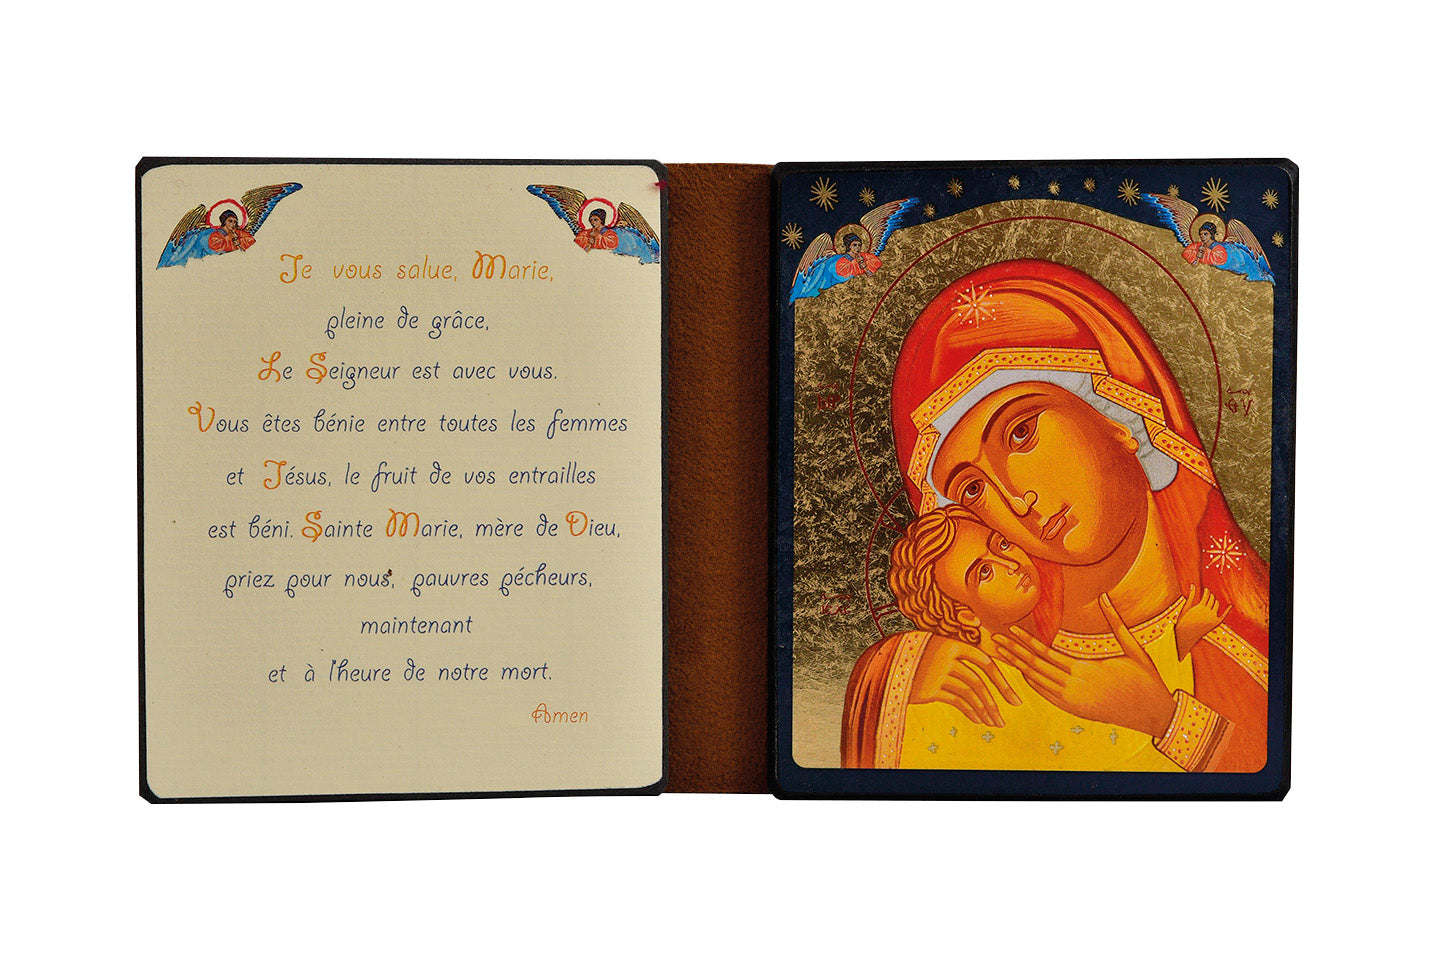 Je vous salue, Marie,
pleine de grâce,
Le Seigneur est avec vous.
Vous êtes bénie entre toutes les femmes
et Jésus, le fruit de vos entrailles
est béni. Sainte Marie, mère de Dieu,
priez pour nous, pauvres pécheurs,
maintenant
et à l'heure de notre mort.
Amen